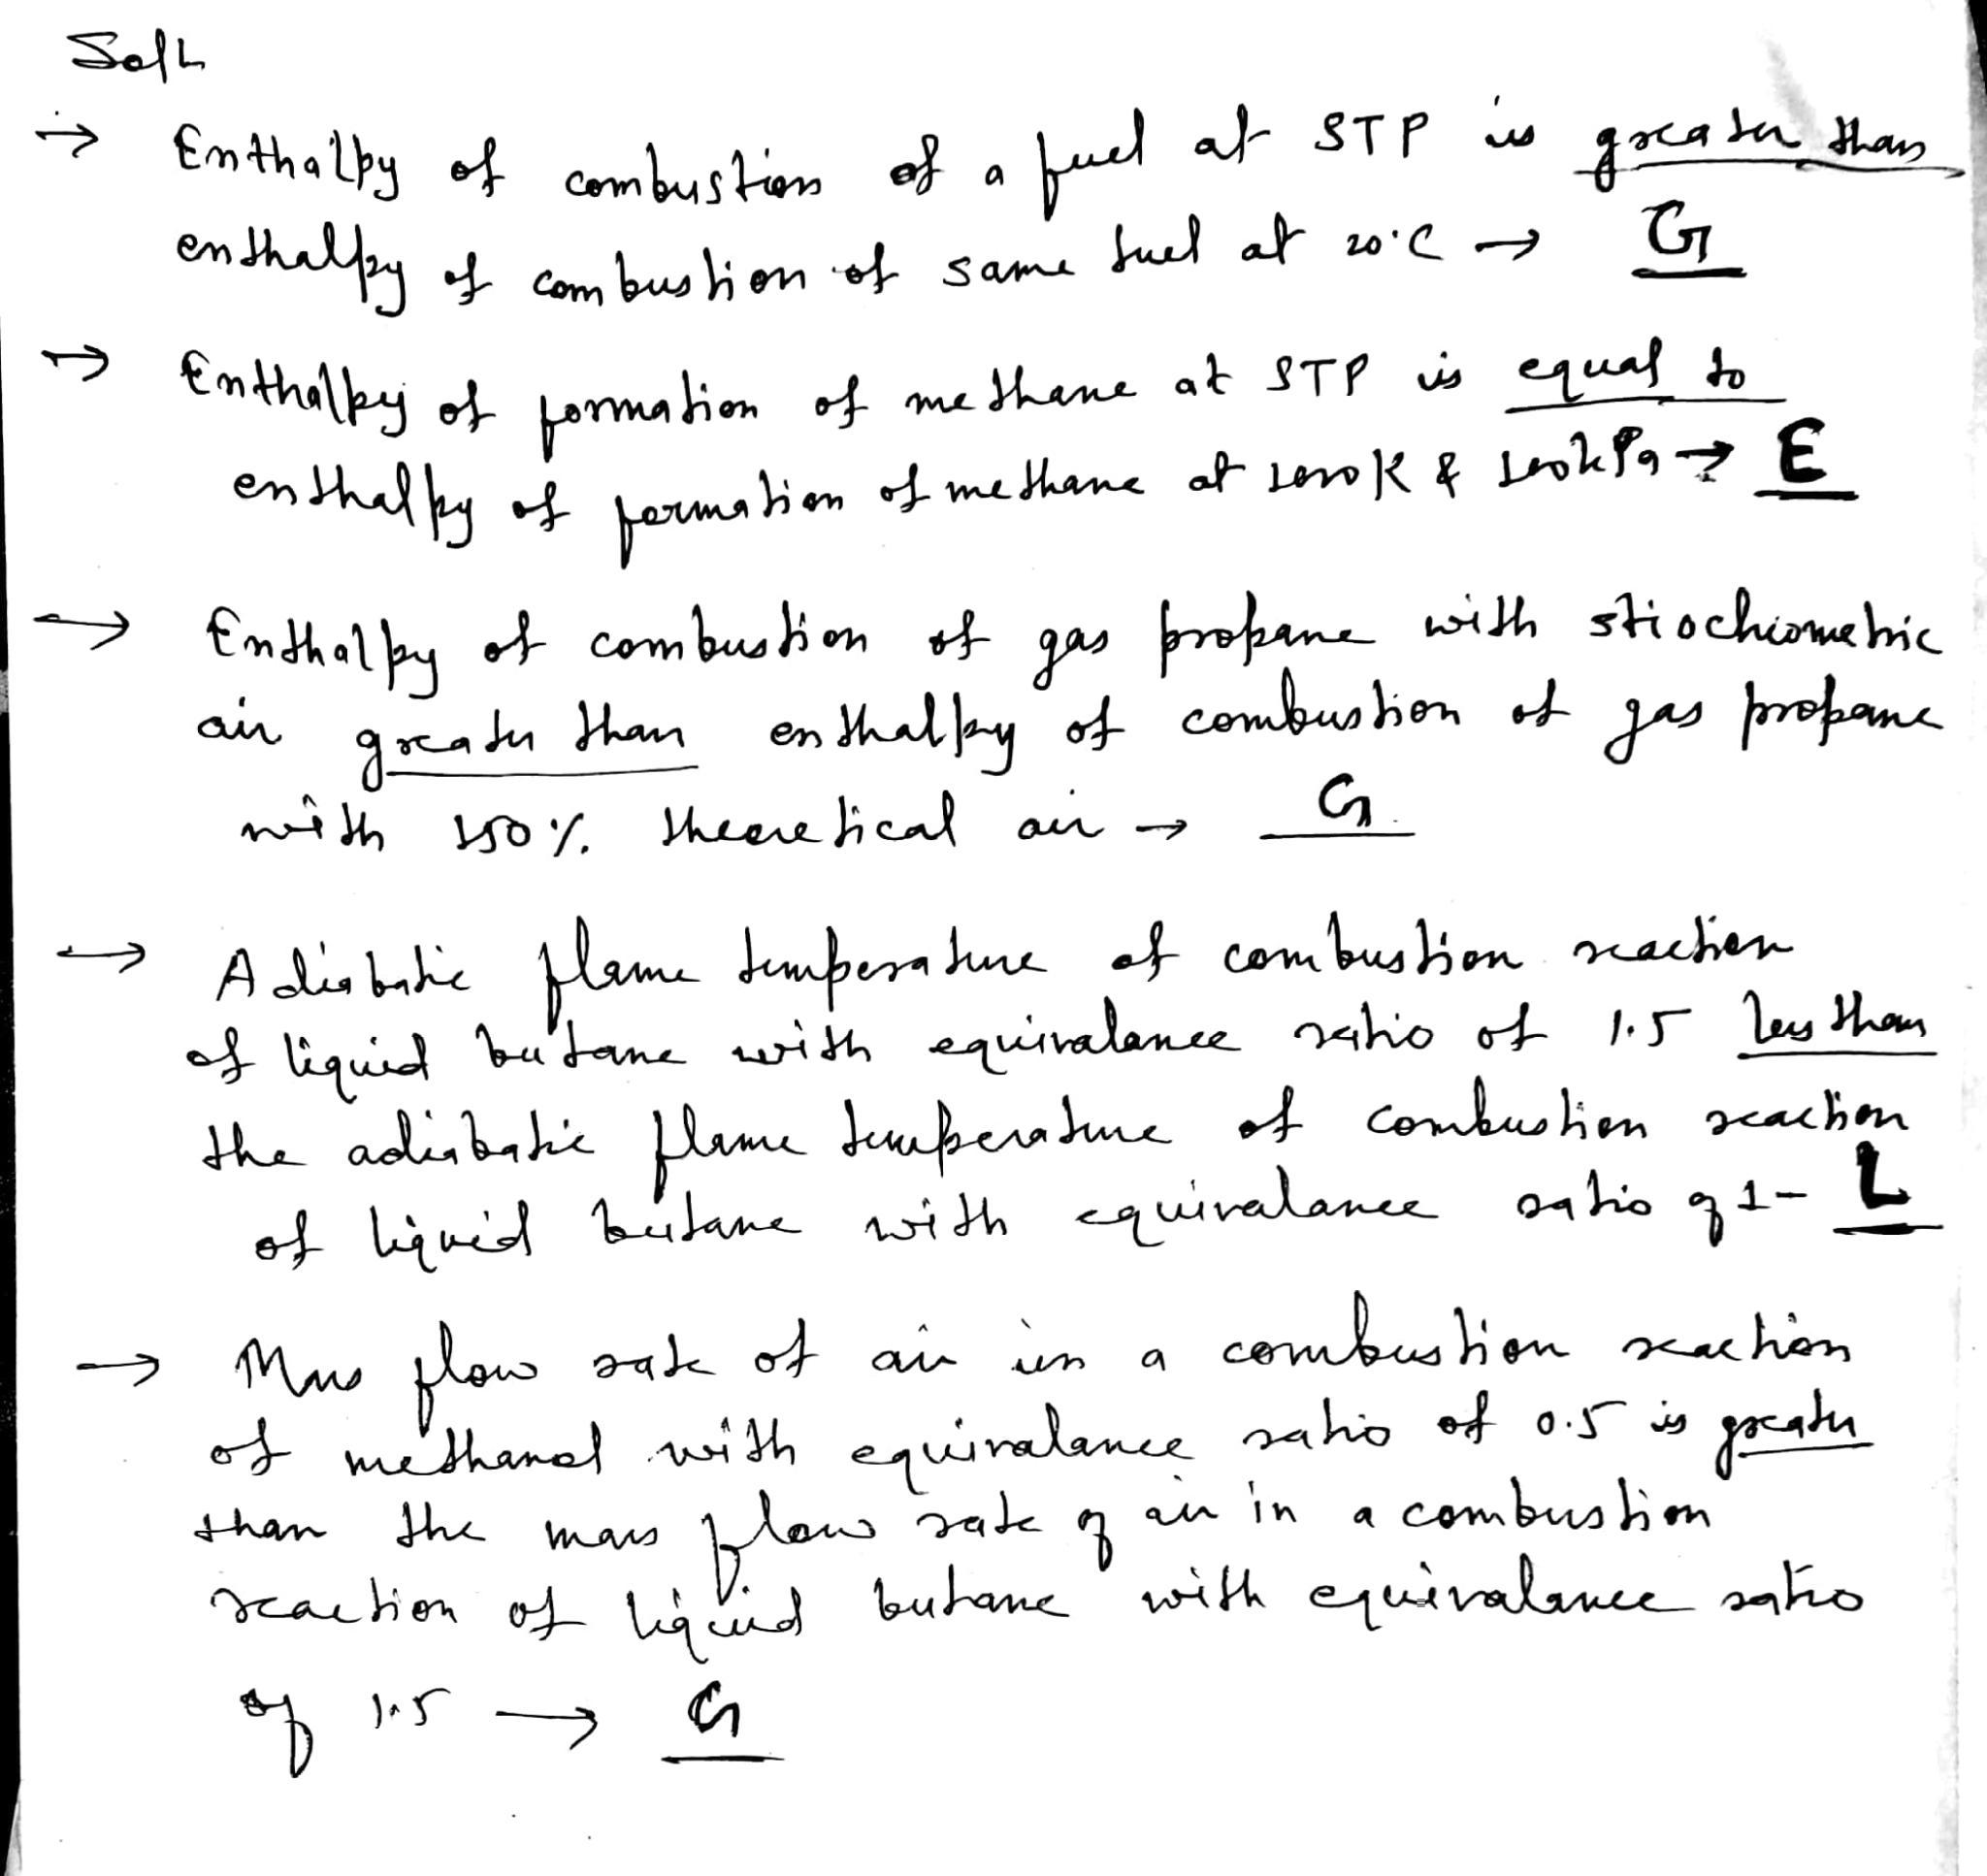 Soln
→ Enthalpy of combustion of a fuel at STP is greater than
enthalpy of combustion of same fuel at 20°C → G
→ Enthalpy of formation of methane at STP is equal to
enthalpy of formation of methane at K & 100kPa → E
→ Enthalpy of combustion of gas propane with stiochiometric
air greater than enthalpy of combustion of gas propane
with 150% theoretical air → G
→ Adiabatic flame temperature of combustion reaction
of liquid butane with equivalance ratio of 1.5 less than
the adiabatic flame temperature of combustion reaction
of liquid butane with equivalance ratio of 1 - L
→ Mass flow rate of air in a combustion reaction
of methanol with equivalance ratio of 0.5 is greater
than the mass flow rate of air in a combustion
reaction of liquid butane with equivalance ratio
of 1.5 → G